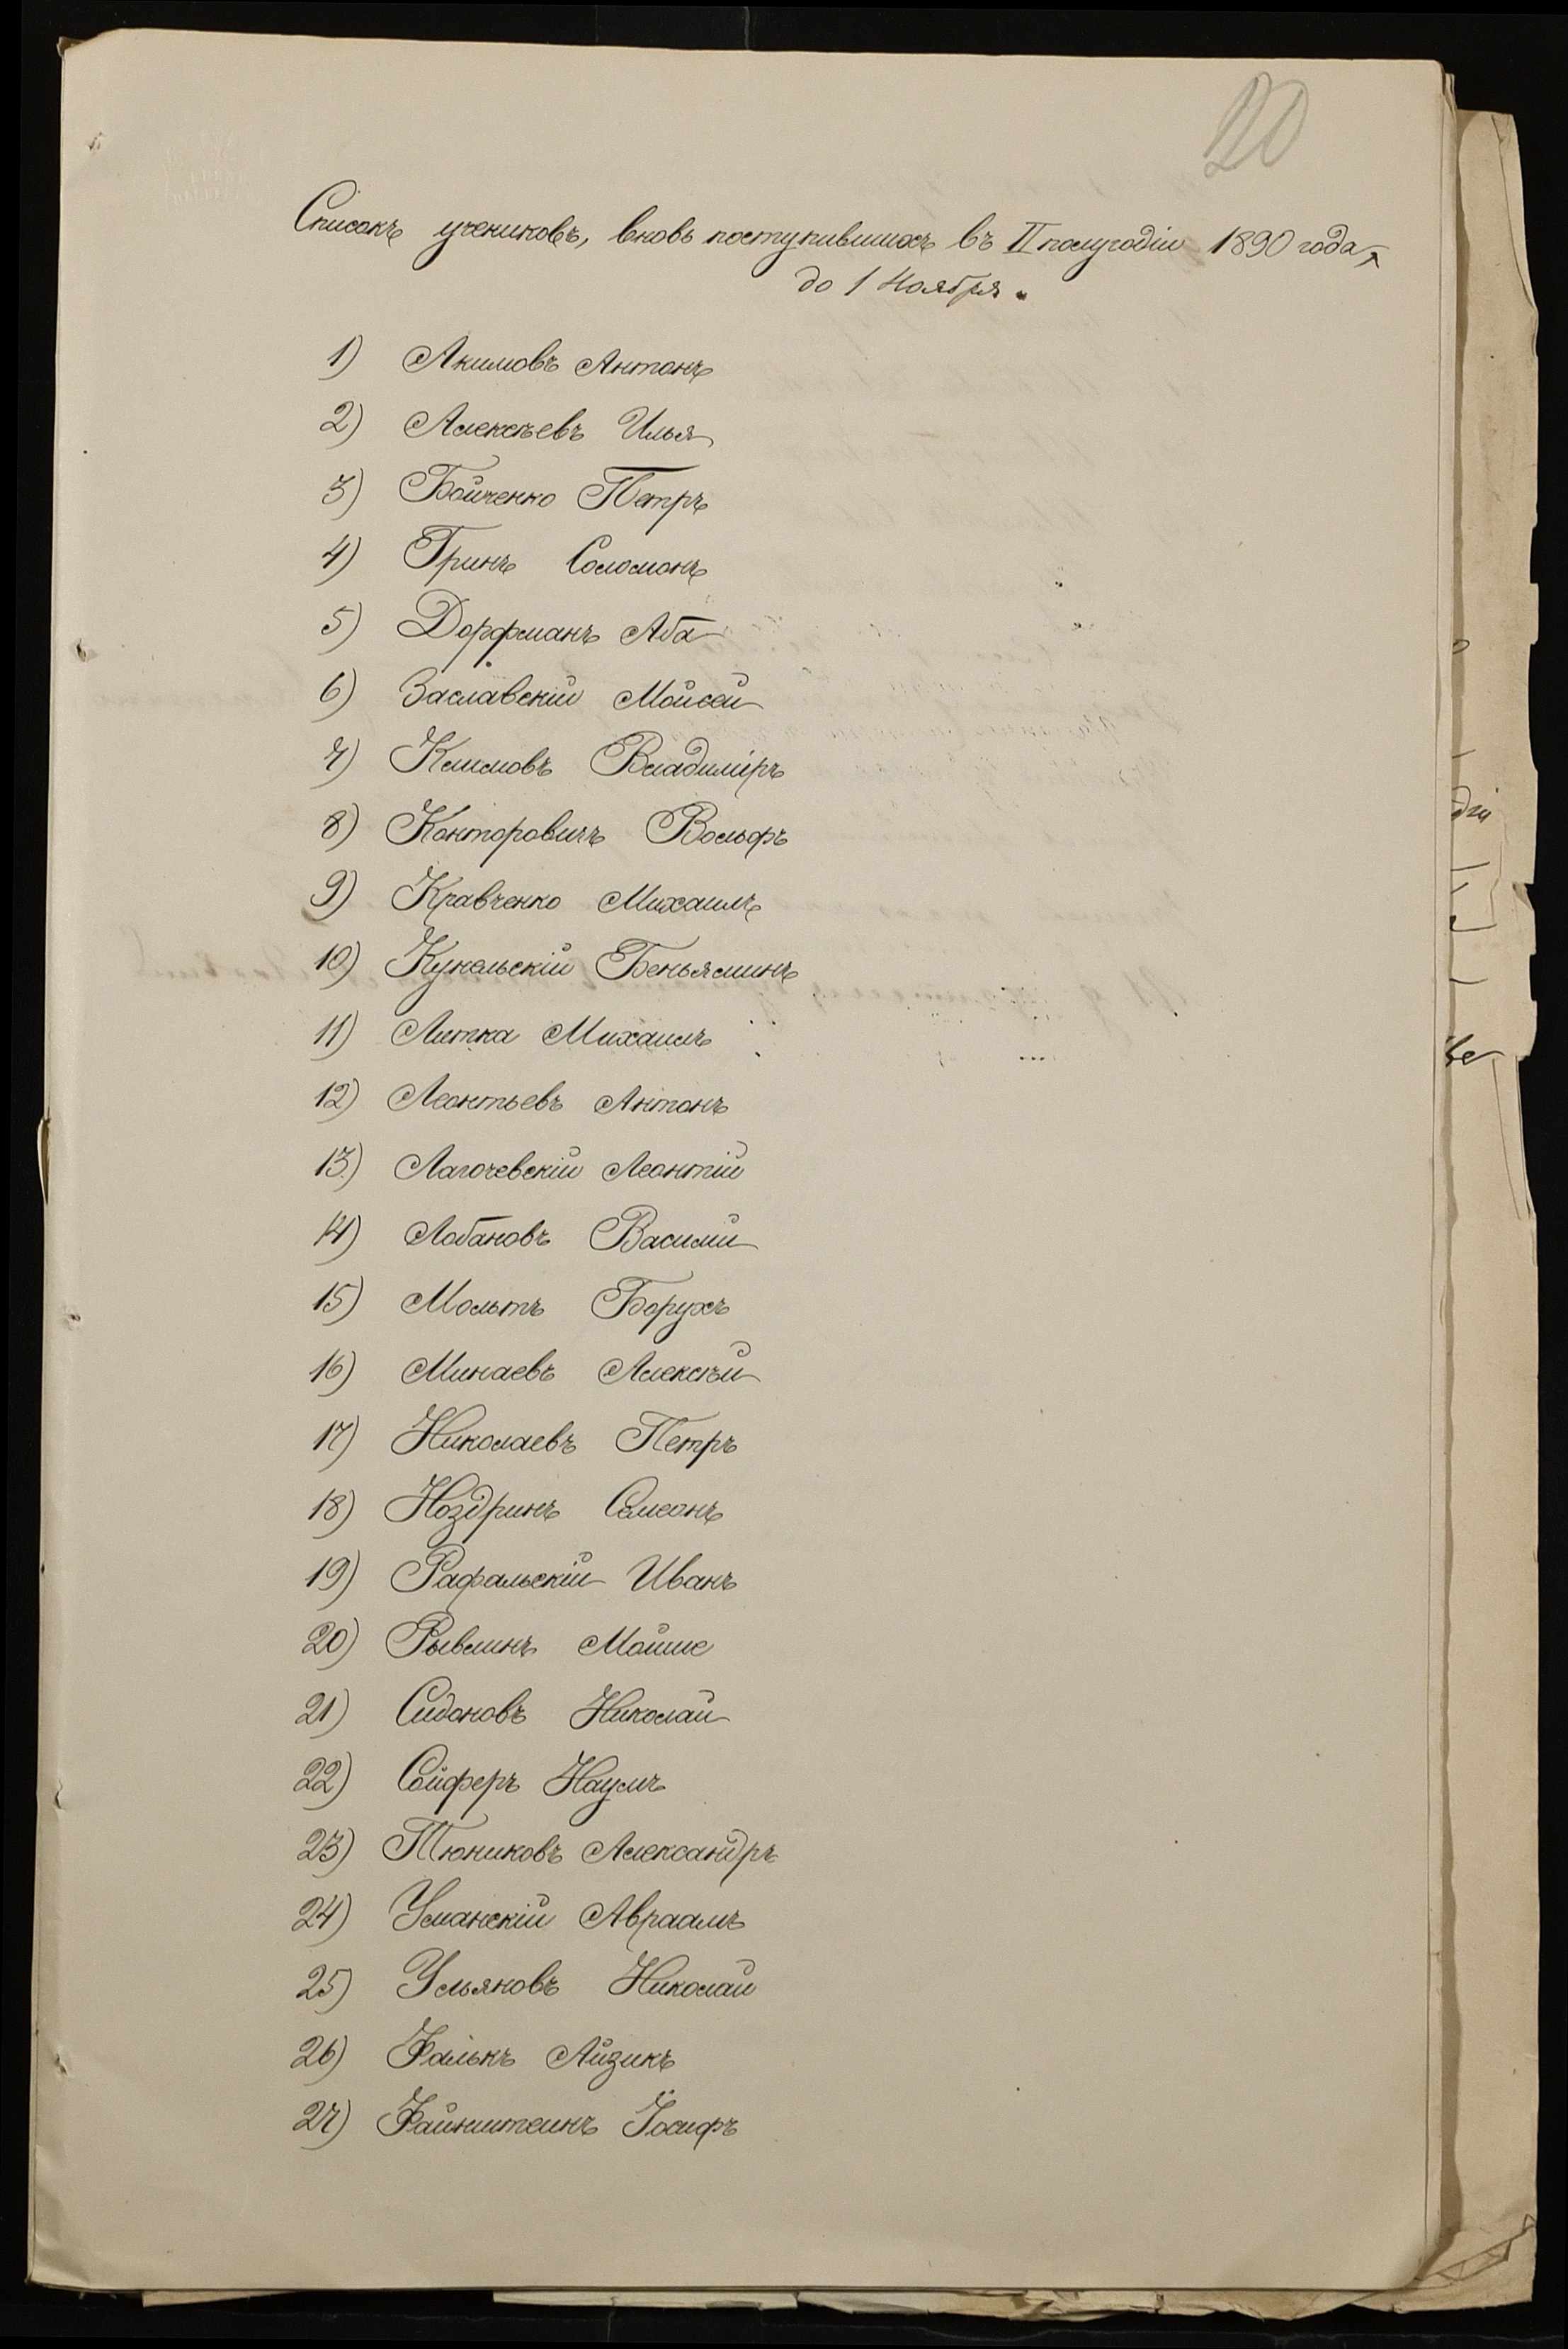 20
Списокъ учениковъ, вновь поступившихъ въ II полугодіи 1890 года,
до 1 Ноября.
1) Акимовъ Антонъ
2) Алексѣевъ Илья
3) Бойченко Петръ
4) Гринъ Соломонъ
5) Дорфманъ Аба
6) Заславскій Мойсей
7) Климовъ Владиміръ
8) Канторовичъ Вольфъ
9) Кравченко Михаилъ
10) Кукельскій Беньяминъ
11) Литка Михаилъ
12) Леонтьевъ Антонъ
13) Лагочевскій Леонтій
14) Лобановъ Василій
15) Мольтъ Борухъ
16) Минаевъ Алексѣй
17) Николаевъ Петръ
18) Ноздринъ Семеонъ
19) Рафальскій Иванъ
20) Рывлинъ Мойше
21) Сидоновъ Николай
22) Сойферъ Наумъ
23) Тюниковъ Александръ
24) Уманскій Авраамъ
25) Ульяновъ Николай
26) Фалькъ Айзикъ
27) Файнштеинъ Іосифъ